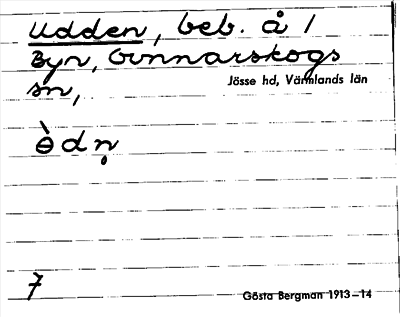 Udden, beb. å 1
Byn, Gunnarskogs
sn,
Jösse hd, Värmlands län
ɵ̀dṇ
7
Gösta Bergman 1913–14